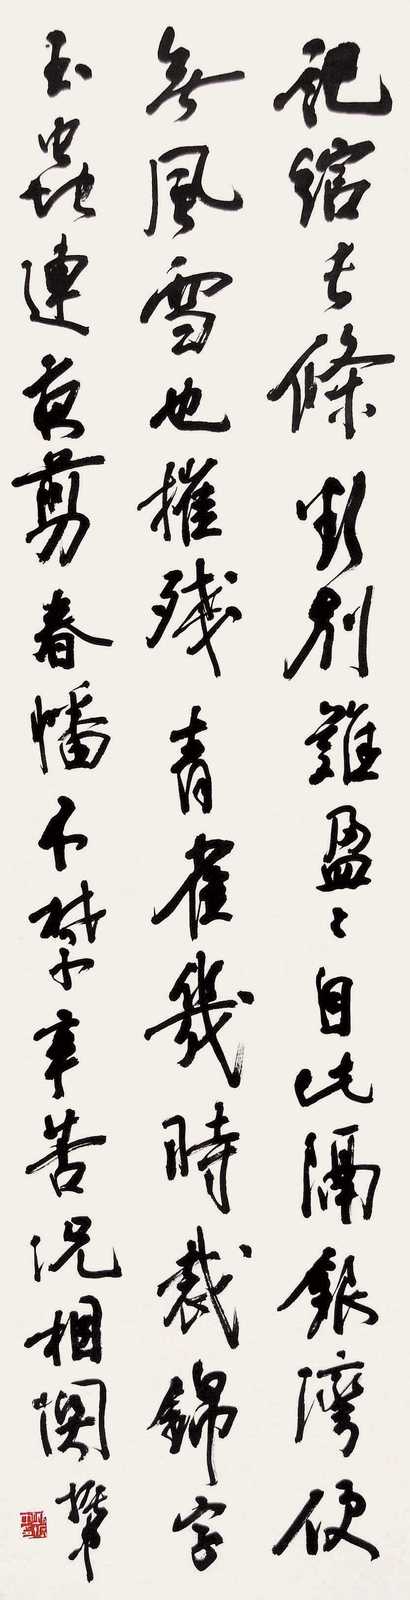 記綰長條欲別難盈〻自此隔銀灣便
無風雪也摧殘青雀幾時裁錦字
玉蟲連夜剪春幡不禁辛苦況相関